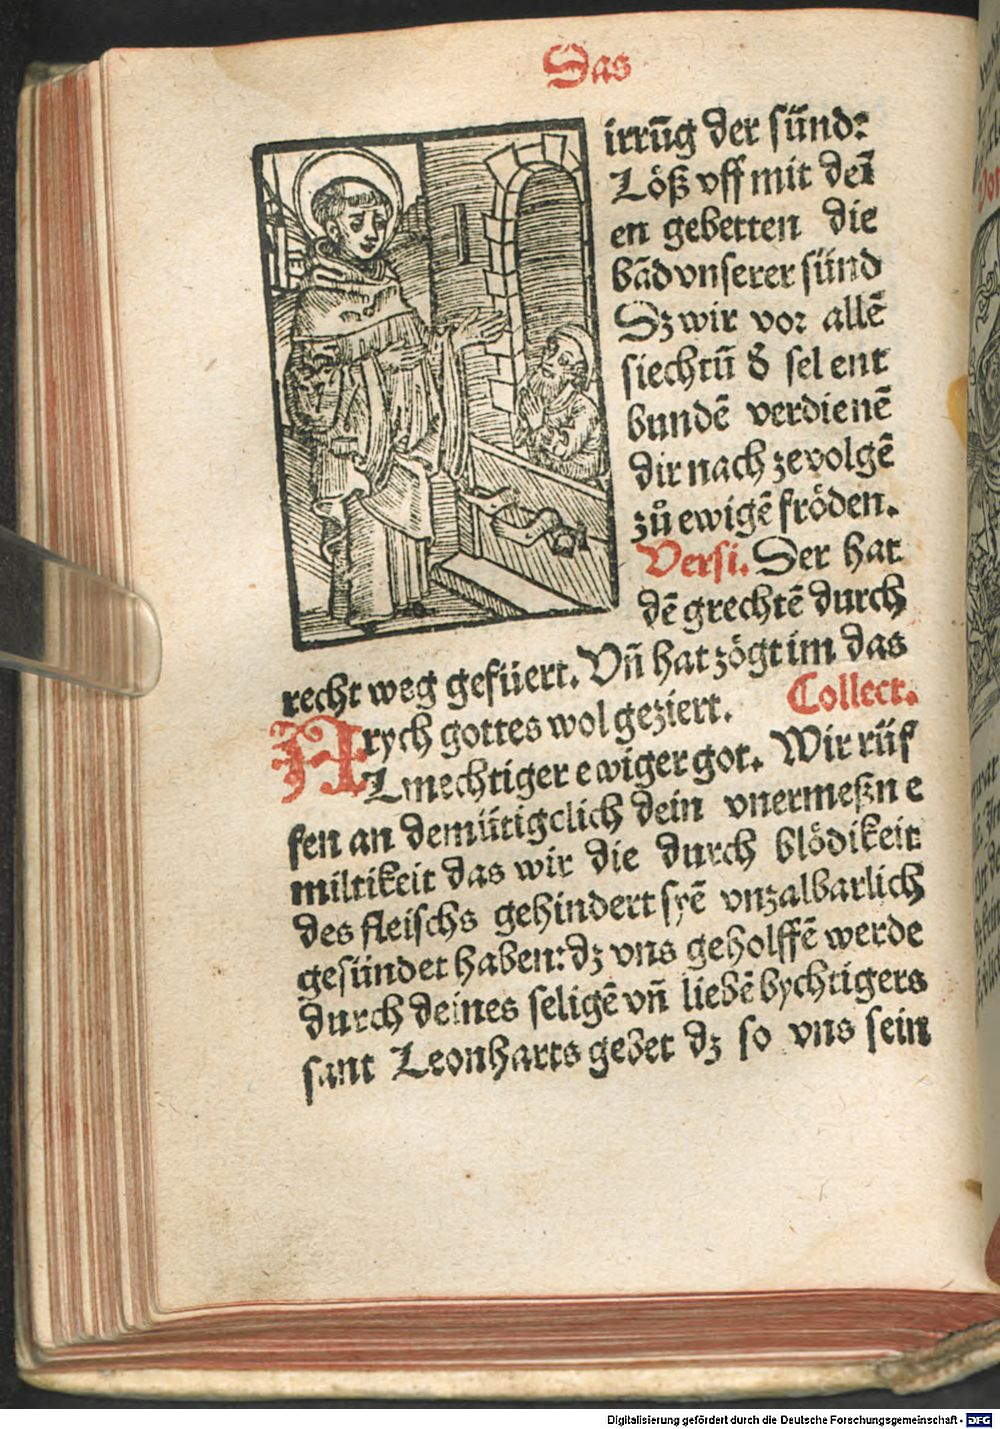 Das
irrūg der sünd:
Löß vff mit deī
en gebetten die
bād vnserer sünd
Dz wir vor allē
siechtū đ sel ent
bundē verdienē
dir nach ze volgē
zů ewigē fröden.
Versi. Der hat
dē grechtē durch
recht weg gefüert. Vñ hat zögt im das
rych gottes wol geziert. Collect.
ALmechtiger ewiger got. Wir rüf
fen an demütigclich dein vnermeßne
miltikeit das wir die durch blödikeit
des fleischs gehindert syē vnzalbarlich
gesündet haben: dz vns geholffē werde
durch deines seligē vñ liebē bychtigers
sant Leonharts gebet dz so vns sein
Digitalisierung gefördert durch die Deutsche Forschungsgemeinschaft - DFG